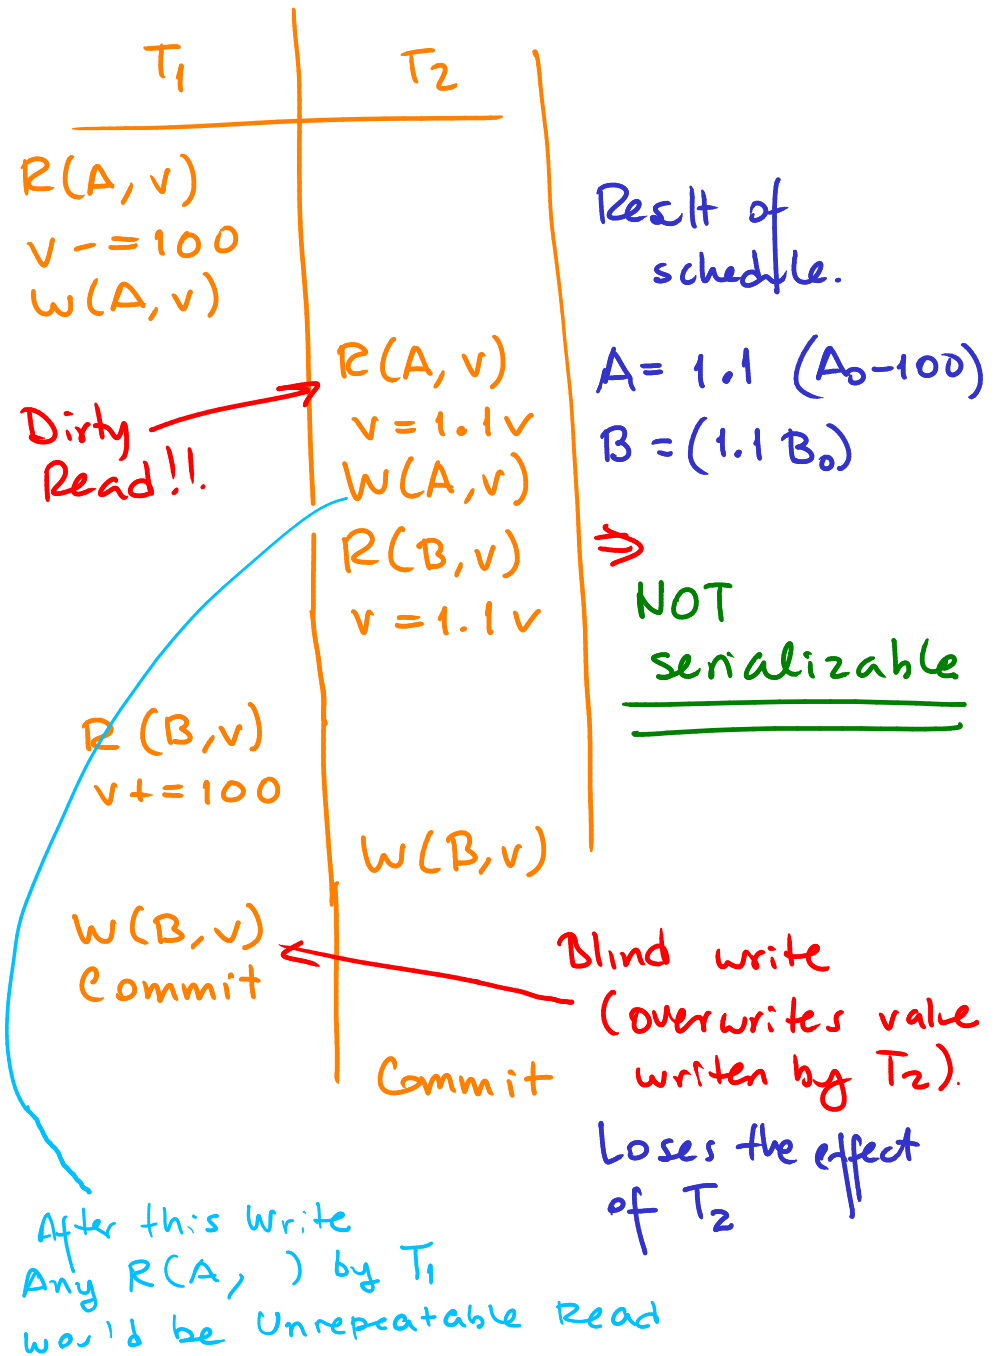 T1 T2
R(A, v)
v -= 100
W(A, v)
R(A, v)
v = 1.1 v
W(A, v)
R(B, v)
v = 1.1 v
R (B, v)
v += 100
W(B, v)
W(B, v)
Commit
Commit
Dirty
Read!!.
Result of
schedule.
A = 1.1 (A0-100)
B = (1.1 B0)
⇒
NOT
serializable
Blind write
(overwrites value
writen by T2).
Loses the effect
of T2
After this Write
Any R(A, ) by T1
would be Unrepeatable Read